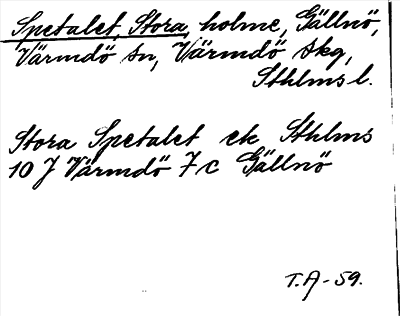 Spetalet, Stora, holme, Gällnö,
Värmdö sn, Värmdö skg,
Sthlms l.
Stora Spetalet ek Sthlms
10 J Värmdö 7 c Gällnö
T.A-59.